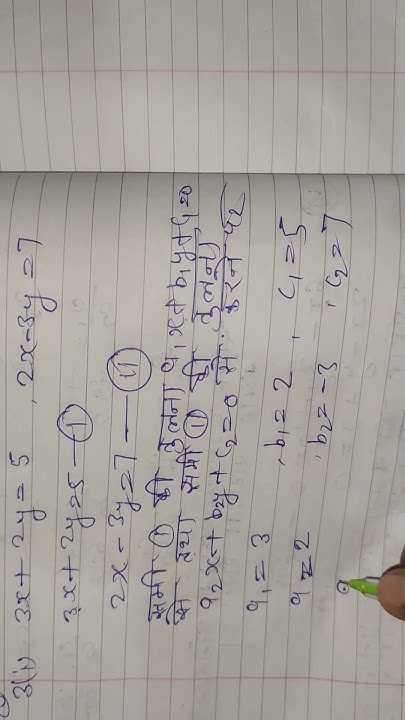 3(i) 3x + 2y = 5 , 2x - 3y = 7
3x + 2y = 5 — (i)
2x - 3y = 7 — (ii)
समी (i) की तुलना a₁x + b₁y + c₁ = 0
से तथा समी (ii) की तुलना
a₂x + b₂y + c₂ = 0 से करने पर
a₁ = 3 , b₁ = 2 , c₁ = 5
a₂ = 2 , b₂ = -3 , c₂ = 7